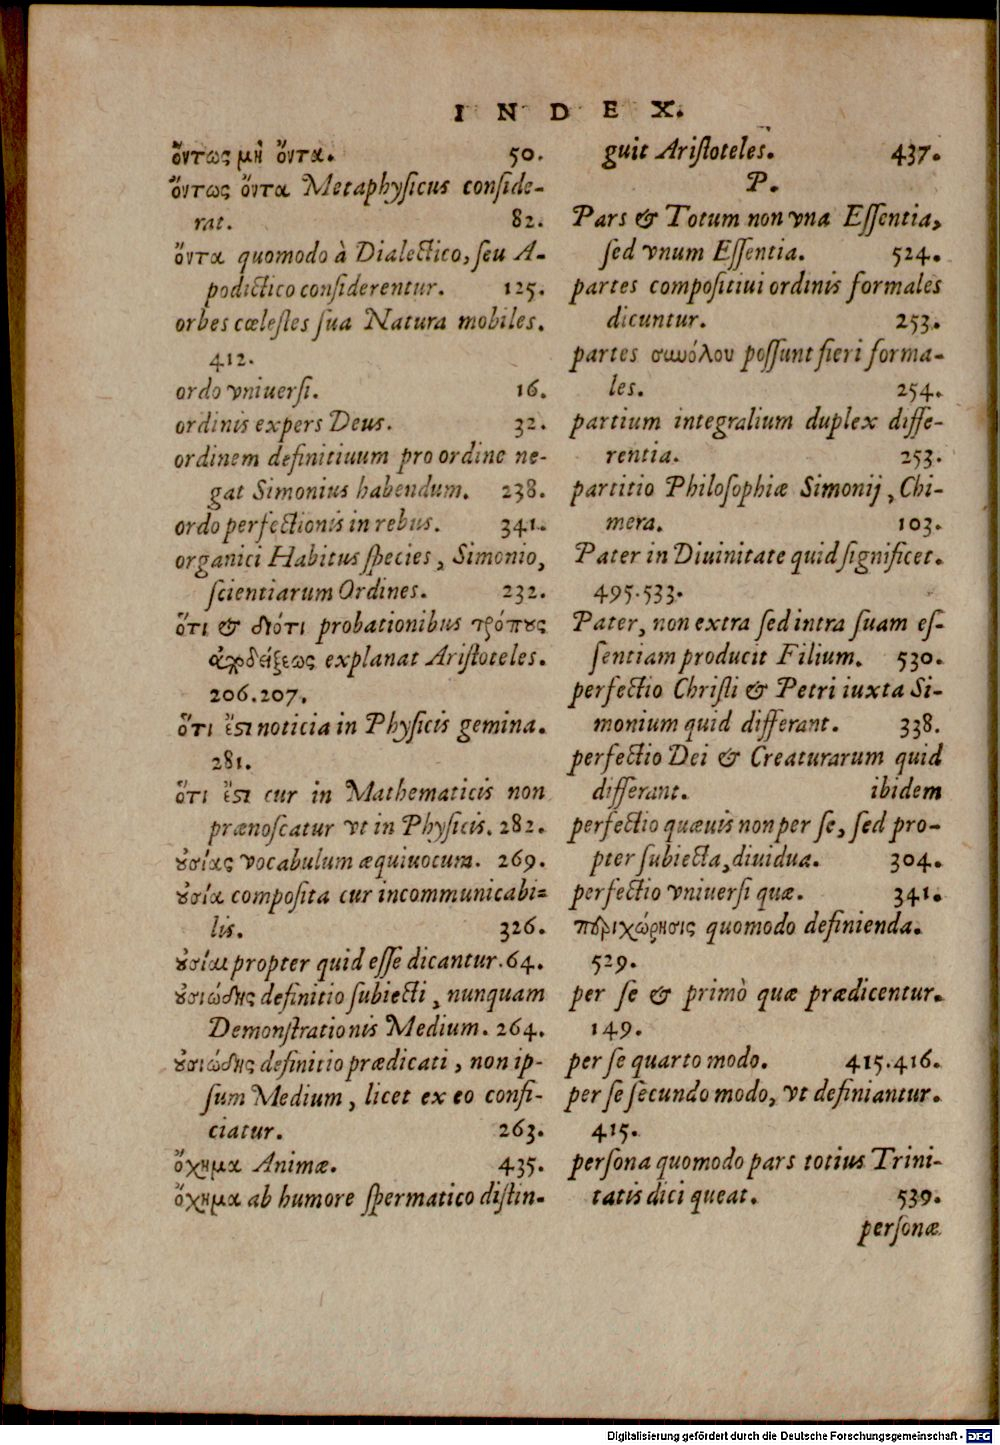 INDEX.
ὄντως μὴ ὄντα. 50.
ὄντως ὄντα Metaphyſicus conſide-
rat. 82.
ὄντα quomodo à Dialectico, ſeu A-
podictico conſiderentur. 125.
orbes cœleſtes ſua Natura mobiles.
412.
ordo vniuerſi. 16.
ordinis expers Deus. 32.
ordinem definitiuum pro ordine ne-
gat Simonius habendum. 238.
ordo perfectionis in rebus. 341.
organici Habitus ſpecies, Simonio,
ſcientiarum Ordines. 232.
ὅτι & διότι probationibus τρόπȣς
ἀποδείξεως explanat Ariſtoteles.
206.207.
ὅτι ἔϛι noticia in Phyſicis gemina.
281.
ὅτι ἔϛι cur in Mathematicis non
prænoſcatur vt in Phyſicis. 282.
ȣσίας vocabulum æquiuocum. 269.
ȣσία compoſita cur incommunicabi-
lis. 326.
ȣσίαι propter quid eſſe dicantur. 64.
ȣσιώδης definitio ſubiecti, nunquam
Demonſtrationis Medium. 264.
ȣσιώδης definitio prædicati, non ip-
ſum Medium, licet ex eo confi-
ciatur. 263.
ὄχημα Animæ. 435.
ὄχημα ab humore ſpermatico diſtin-
guit Ariſtoteles. 437.
P.
Pars & Totum non vna Eſſentia,
ſed vnum Eſſentia. 524.
partes compoſitiui ordinis formales
dicuntur. 253.
partes συνόλου poſſunt fieri forma-
les. 254.
partium integralium duplex diffe-
rentia. 253.
partitio Philoſophiæ Simonij, Chi-
mera. 103.
Pater in Diuinitate quid ſignificet.
495.533.
Pater, non extra ſed intra ſuam eſ-
ſentiam producit Filium. 530.
perfectio Chriſti & Petri iuxta Si-
monium quid differant. 338.
perfectio Dei & Creaturarum quid
differant. ibidem
perfectio quæuis non per ſe, ſed pro-
pter ſubiecta, diuidua. 304.
perfectio vniuerſi quæ. 341.
περιχώρησις quomodo definienda.
529.
per ſe & primò quæ prædicentur.
149.
per ſe quarto modo. 415.416.
per ſe ſecundo modo, vt definiantur.
415.
perſona quomodo pars totius Trini-
tatis dici queat. 539.
perſonæ
Digitalisierung gefördert durch die Deutsche Forschungsgemeinschaft - DFG